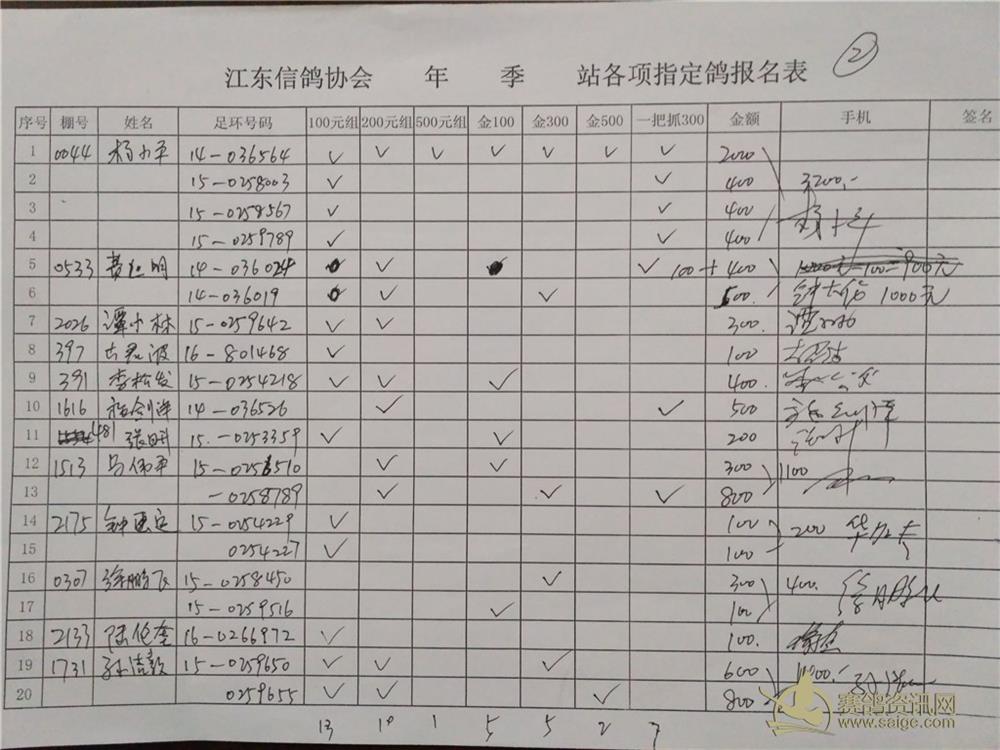 ②
江东信鸽协会 年 季 站各项指定鸽报名表
序号 棚号 姓名 足环号码 100元组 200元组 500元组 金100 金300 金500 一把抓300 金额 手机 签名
1 0044 杨小平 14-036564 ✓ ✓ ✓ ✓ ✓ ✓ ✓ 2000
2 15-0258003 ✓ ✓ 400 3200,-
3 15-0258567 ✓ ✓ 400
4 15-0259789 ✓ ✓ 400
5 0533 14-036024 ✓ ✓ 100+400 1000元-100=900元
6 14-036019 ✓ ✓ 500. 1000元
7 2026 谭小林 15-0259642 ✓ ✓ 300.
8 397 16-801468 ✓ 100
9 391 李松发 15-0254218 ✓ ✓ ✓ 400.
10 1616 14-036526 ✓ ✓ 500
11 481 张明 15.-0253359 ✓ ✓ 200
12 1513 马伟平 15-0258510 ✓ ✓ 300 1100
13 -0258789 ✓ ✓ ✓ 800
14 2175 15-0254229 ✓ 100 200
15 0254227 ✓ 100
16 0307 徐鹏飞 15-0258450 ✓ 300 400.
17 15-0259516 ✓ 100
18 2133 陆伦奎 16-0266972 ✓ 100.
19 1731 15-0259650 ✓ ✓ ✓ 600
20 0259655 ✓ ✓ ✓ 800
13 10 1 5 5 2 7
赛鸽资讯网
www.saige.com